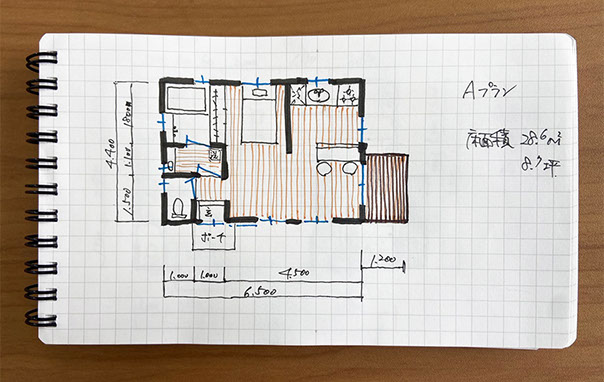 Aプラン
床面積 28.6㎡
8.7坪
4,400
1,800
1,100
1,500
ポーチ
1,000 1,000 4,500 1,200
6,500